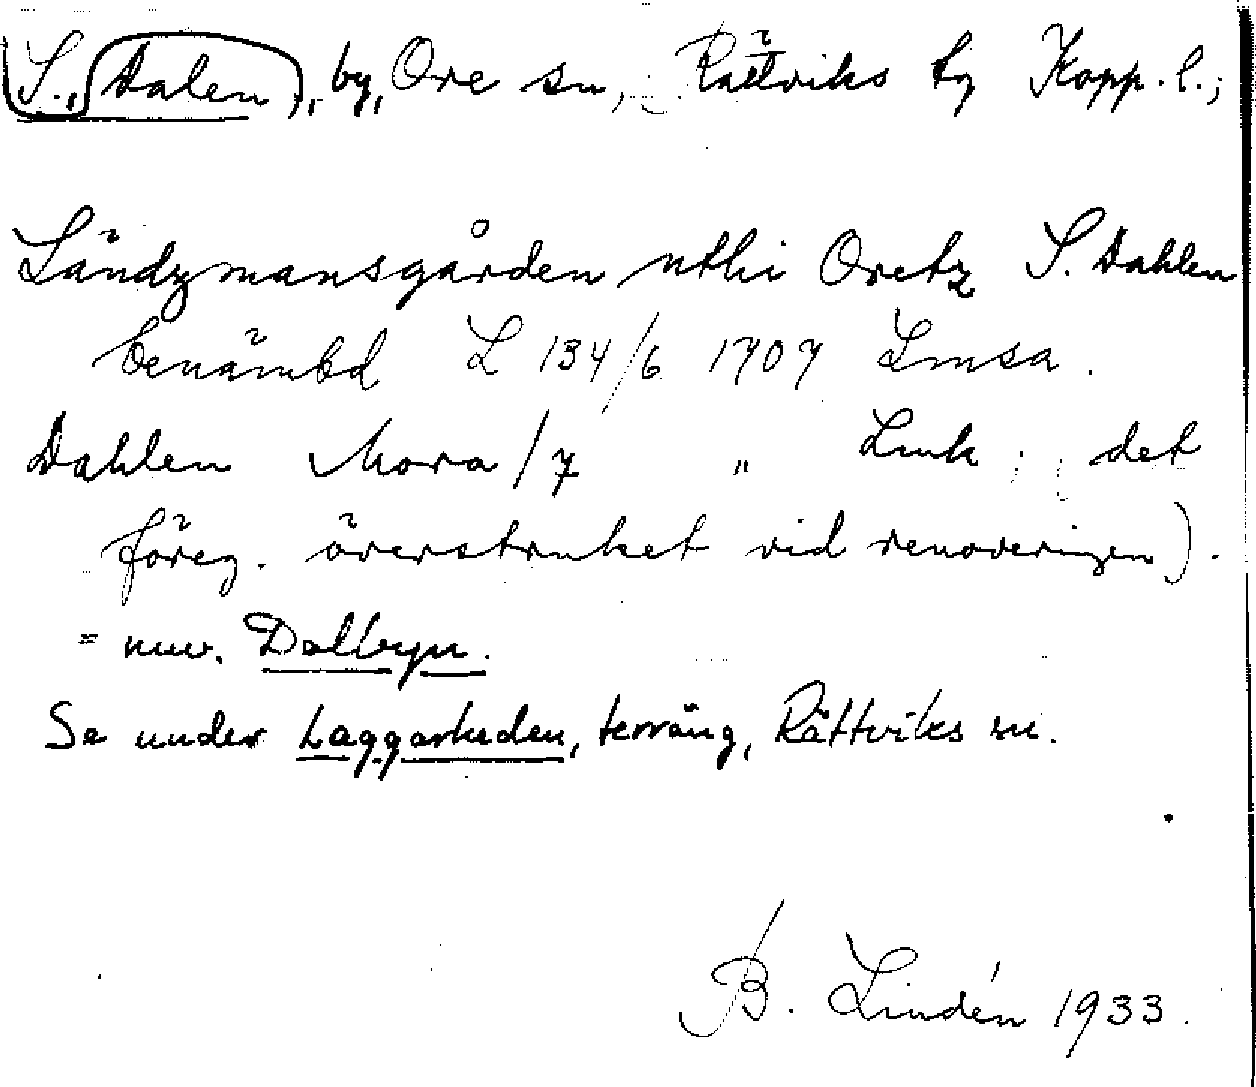 S., Dalen, by, Ore sn, Rättviks tg Kopp. l.;
Ländzmansgården uthi Oretz S. Dahlen
benämbd L 134/6 1707 Lmsa.
Dahlen Mora/7 " Lmk; det
föreg. överstruket vid renoveringen).
= nuv. Dalbyn.
Se under Laggarheden, terräng, Rättviks sn.
B. Lindén 1933.